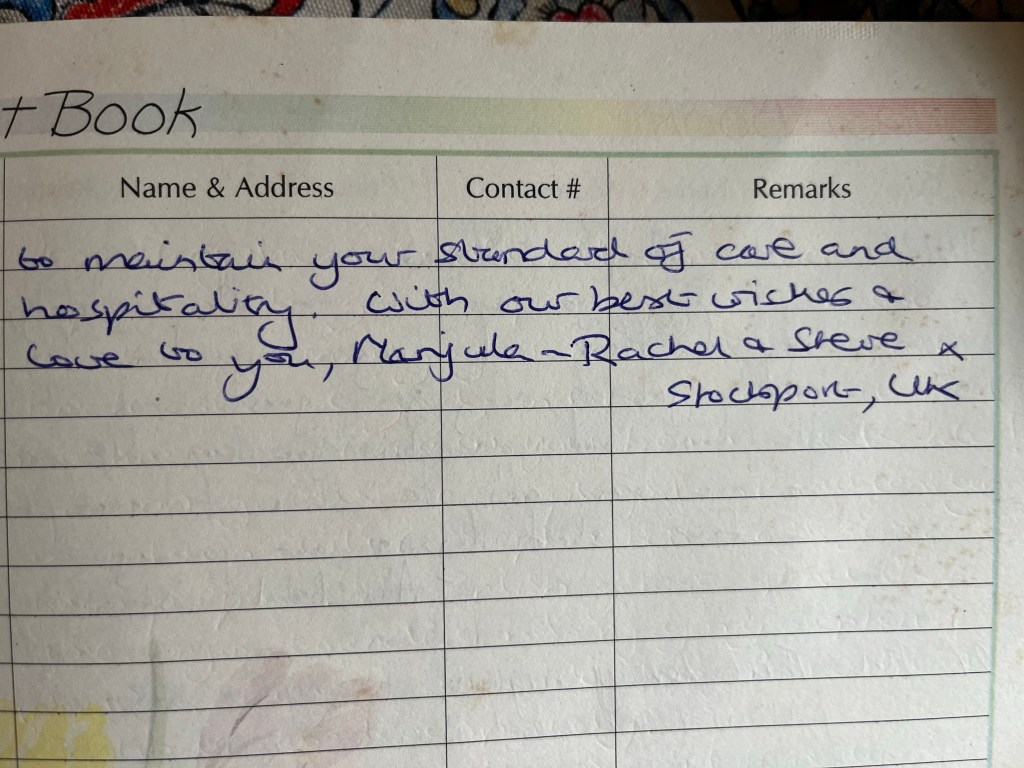 t Book
Name & Address Contact # Remarks
to maintain your standard of care and
hospitality. With our best wishes &
love to you, Manjula - Rachel & Steve x
Stockport, UK